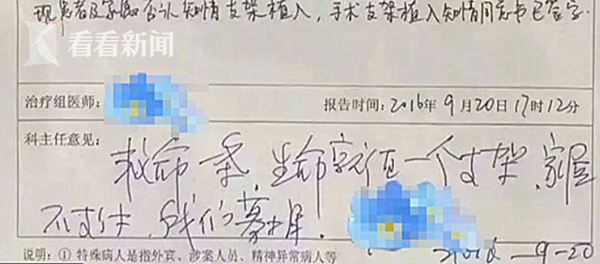 现患者及家属否认知情支架植入，手术支架植入知情同意书已签字.
看看新闻
治疗组医师：
报告时间：2016年9月20日17时12分
科主任意见：
救命一条，生命就值一个支架，家属
不支付，我们募捐．
2016-9-20
说明：① 特殊病人是指外宾、涉案人员、精神异常病人等